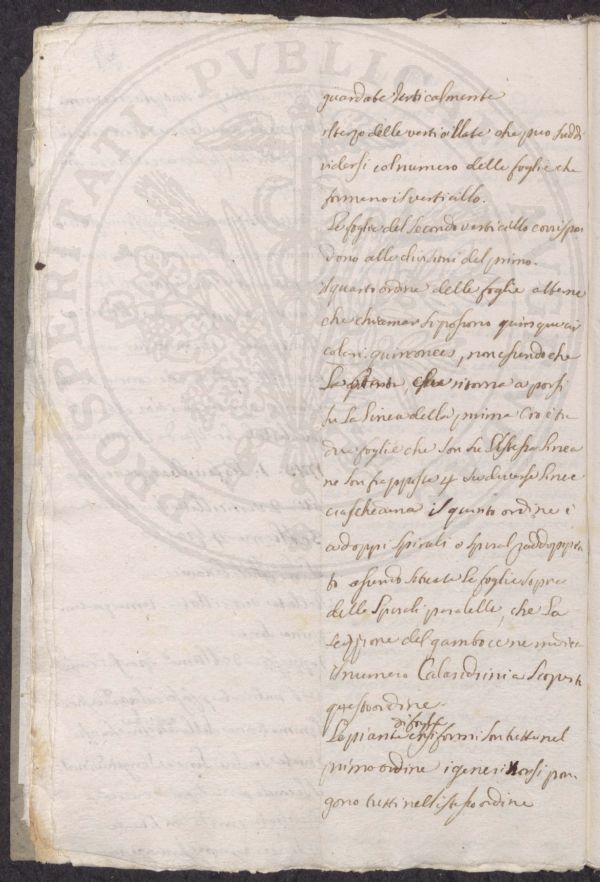 PROSPERITATI PVBLICAE AVGENDAE
guardate verticalmente
il terzo delle verticillate che può suddi
vidersi col numero delle foglie che
formano il verticillo.
Le foglie del secondo verticillo corrispon
dono alle divisioni del primo.
il quarto ordine delle foglie alterne
che chiamar si possono quinque cir
colari, quinconces, non essendo che
La sesta, che ritorna a porsi
su La Linea della prima cioè tra
due foglie che son su L'istessa Linea
ne son frapposte 4 su diverse Linee
ciascheduna il quinto ordine è
a doppi spirali o spiral raddoppia
to essendo situate Le foglie sopra
delle Spirali paralelle, che La
sezzione del gambo ce ne indica
il numero Calandrini a scoperto
questo ordine.
Le piante di foglie ensiformi son tutte nel
primo ordine i generi non si pon
gono tutti nell'istesso ordine